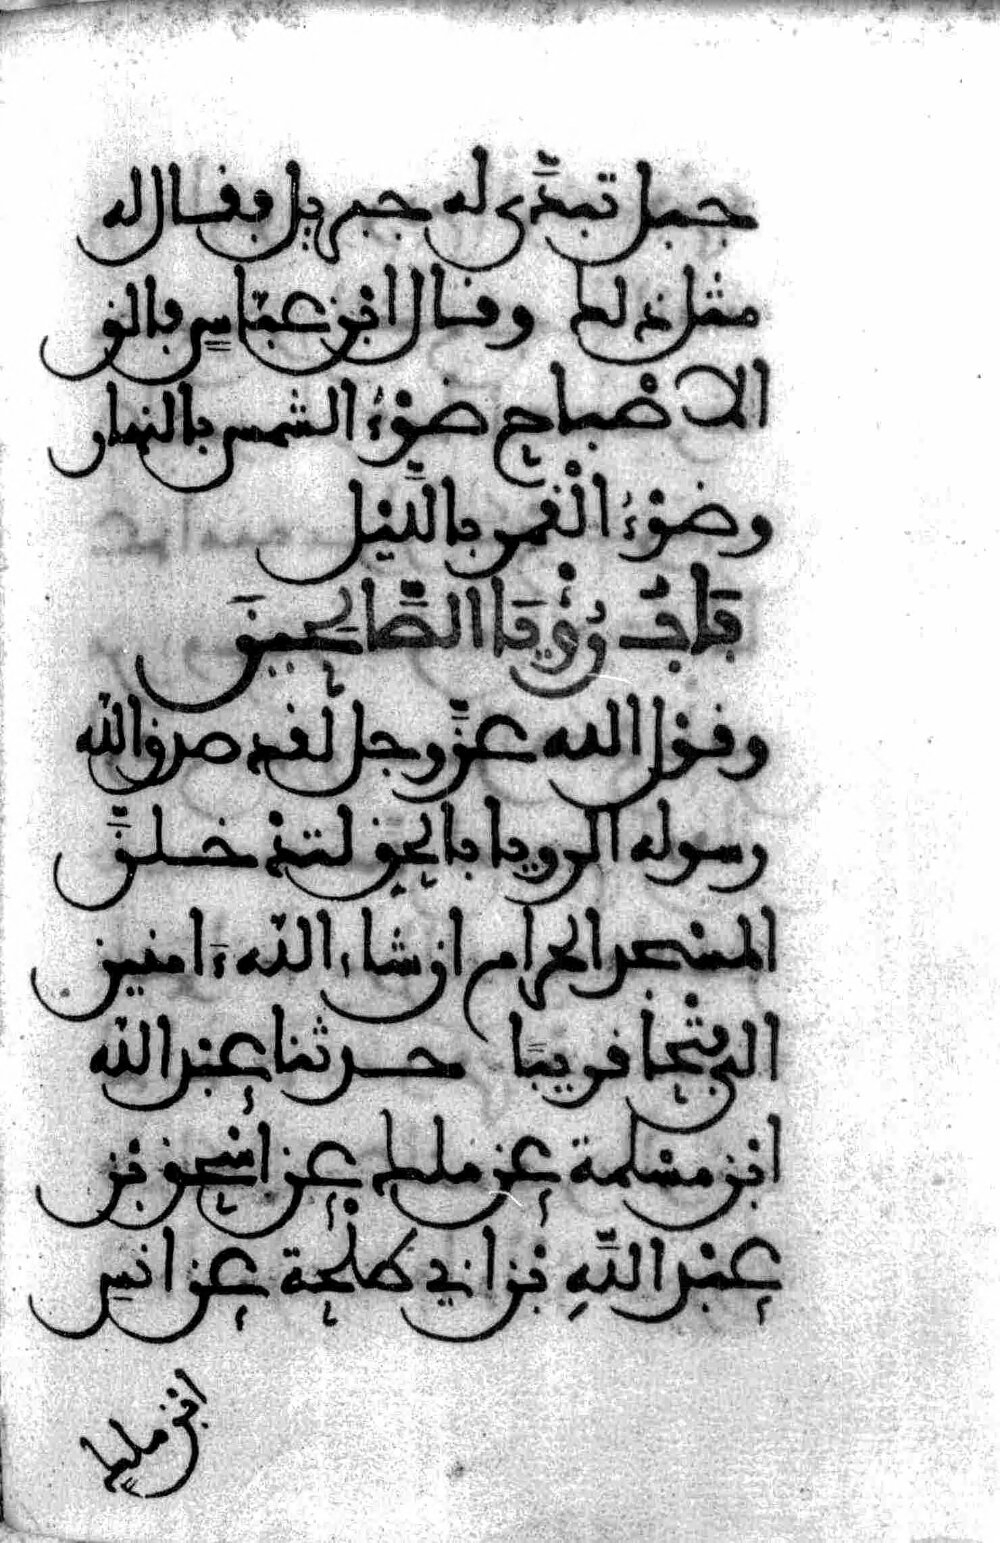 جبل تبدّى له جبريل فقال له
مثل ذلك وقال ابن عبّاس فالق
الاصْباح ضوْءُ الشمس بالنهار
وضوْءُ الْقمر بالليْل
بَابُ رُؤْيَا الصَّالِحِينَ
وقوْل الله عزّ وجل لقد صدق الله
رسوله الرويا بالحق لتدْخلنّ
المسْجد الحرام ان شاء الله ءامنين
الى فتْحا قريبًا حدثنا عبْد الله
ابن مسْلمة عن ملك عن اسْحق بْن
عبْد اللّهِ بْن ابي طلْحة عن انس
ابْن ملك